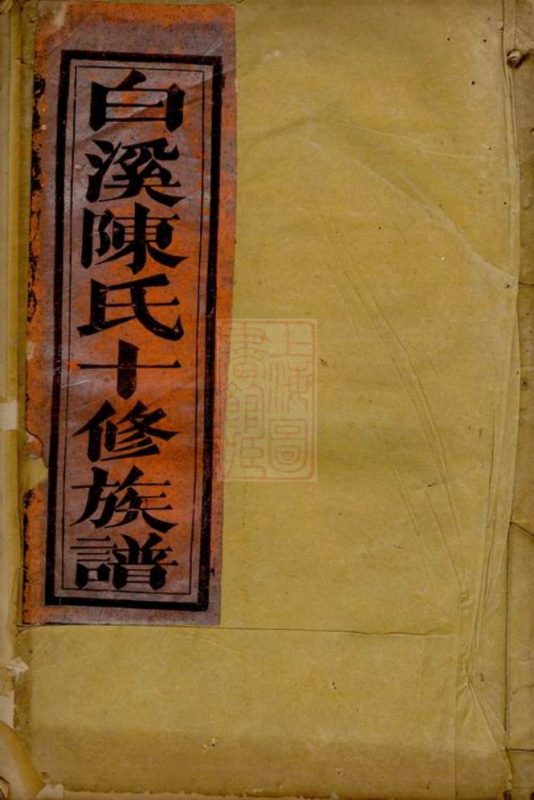 白溪陳氏十修族譜
上海圖
書館藏